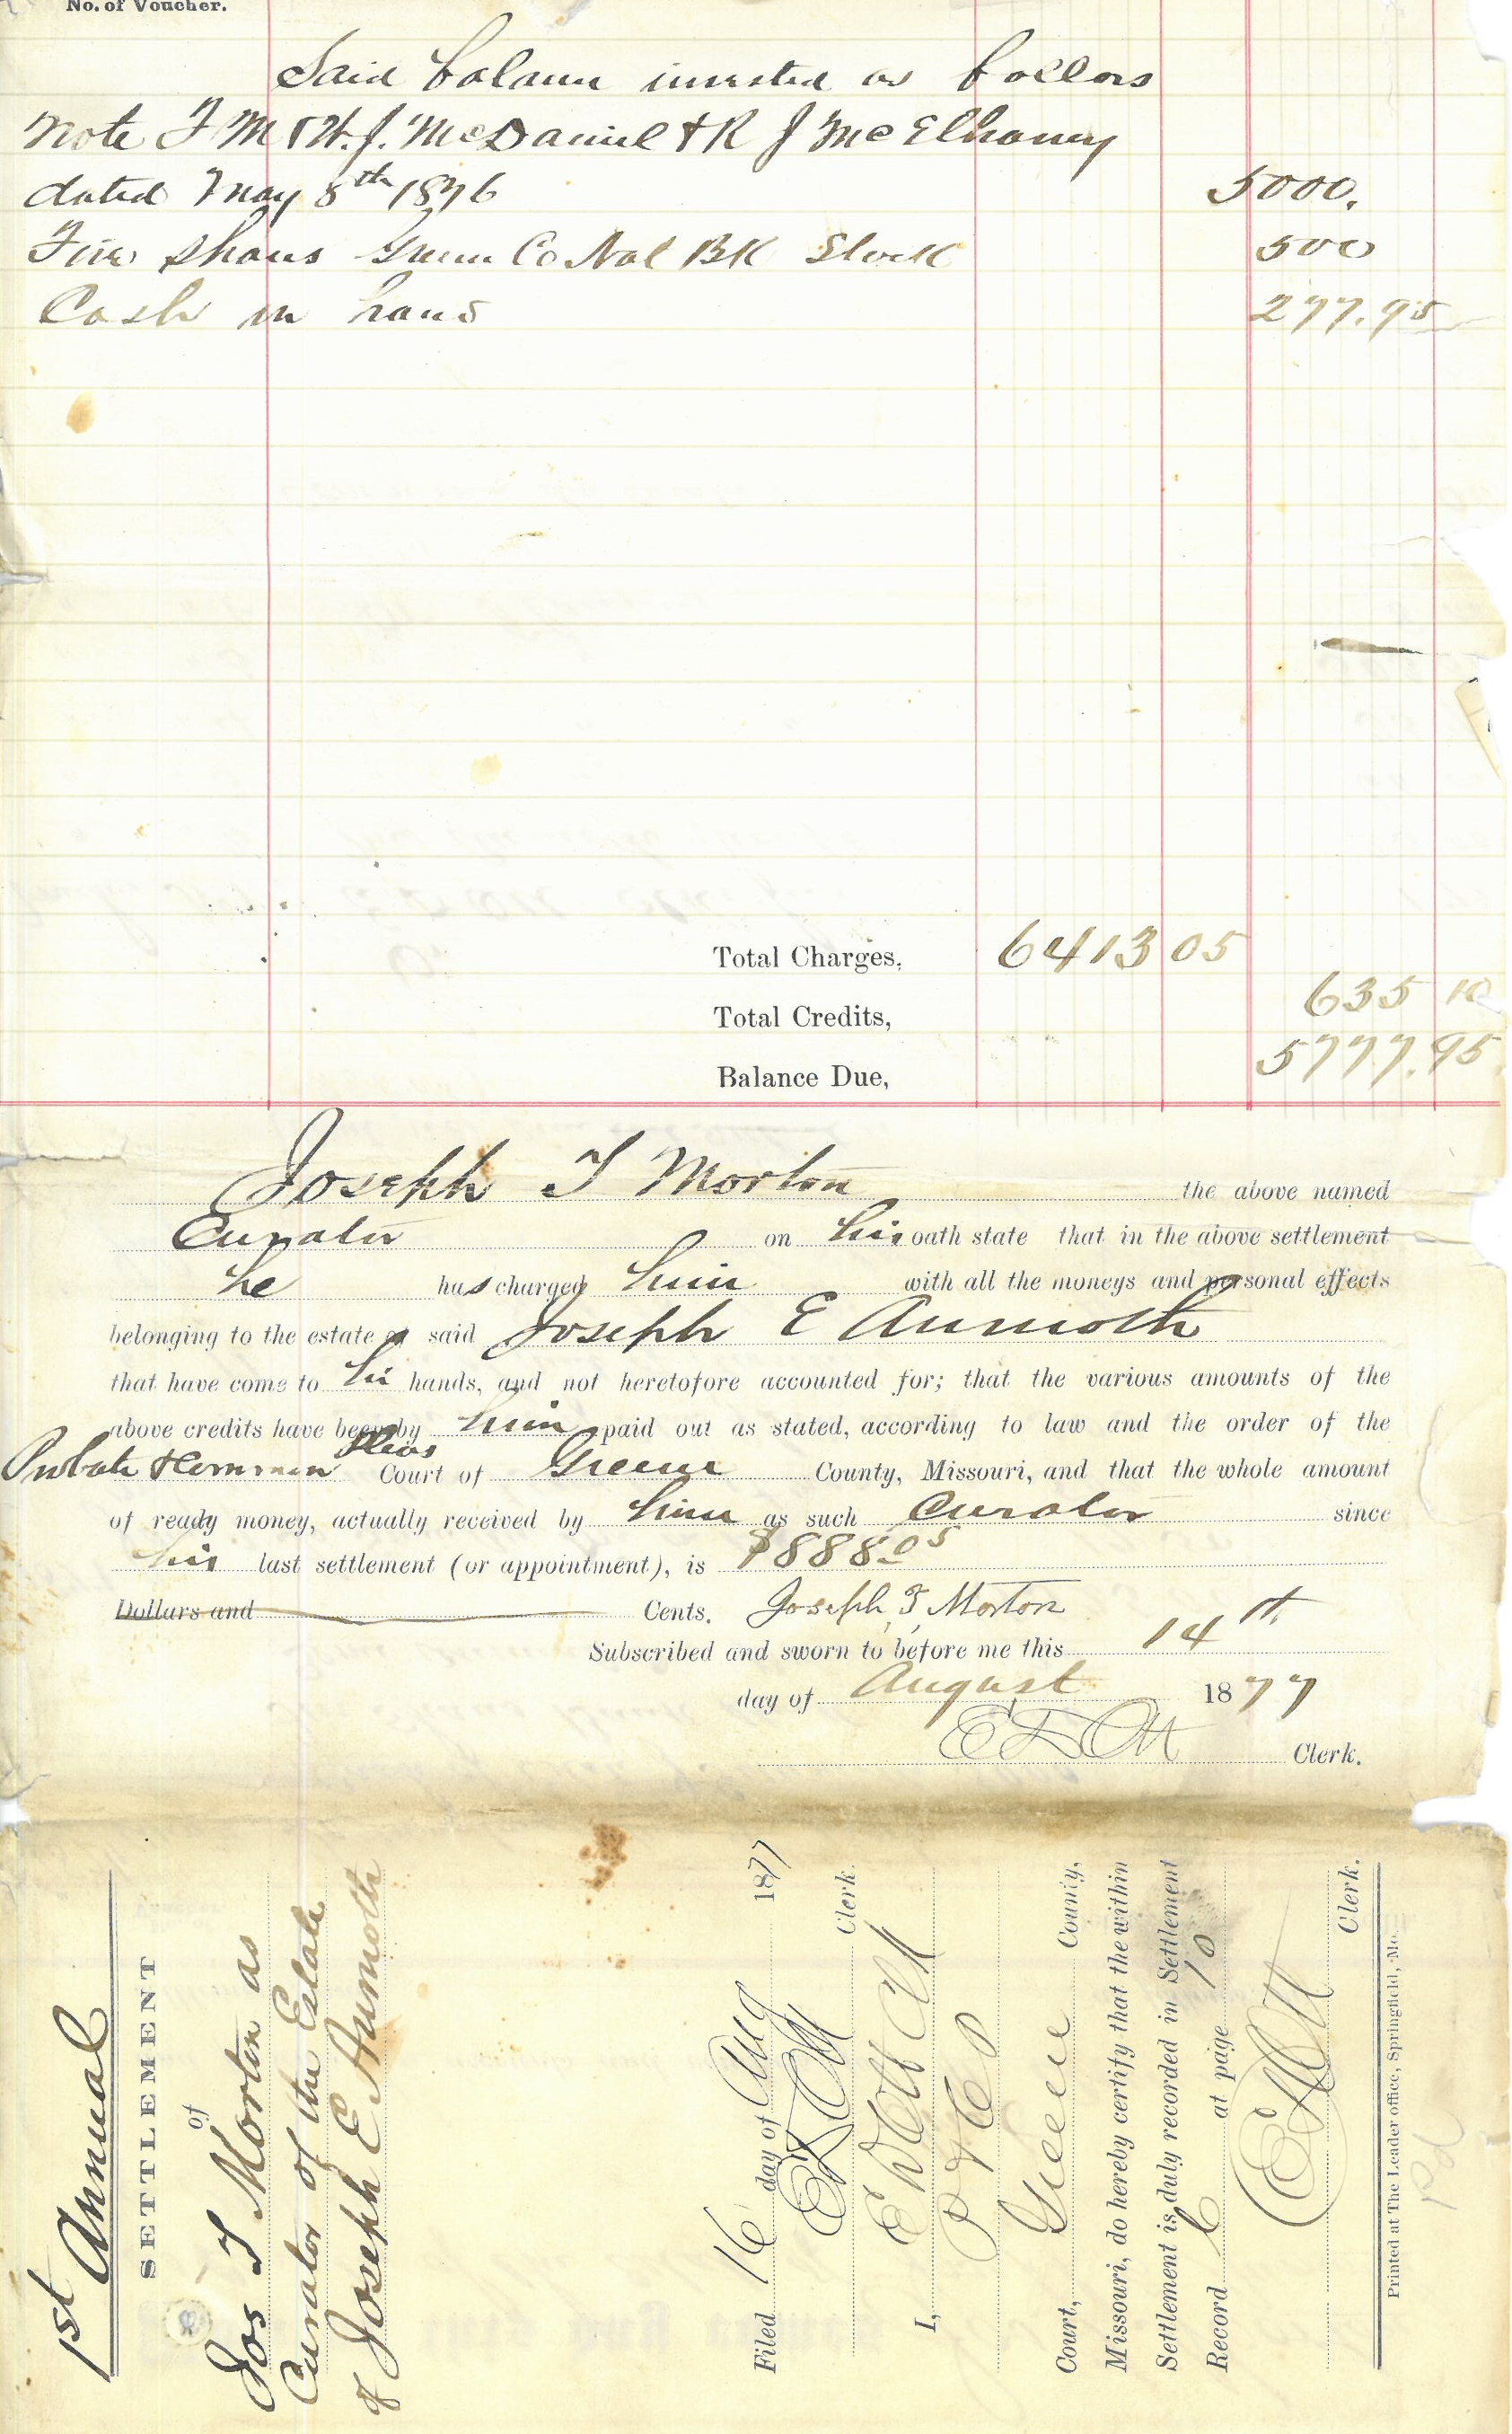 No. of Voucher.
Said balance invested as follows
Note F M & H. J. McDaniel & R J McElhaney
dated May 8th 1876 5000.
Five Shares Green Co Nal BK Stock 500
Cash in hand 277.95
Total Charges, 6413 05
Total Credits, 635 10
Balance Due, 5777.95
Joseph T Morton the above named
Curator on his oath state that in the above settlement
he has charged him with all the moneys and personal effects
belonging to the estate of said Joseph E Aumoth
that have come to his hands, and not heretofore accounted for; that the various amounts of the
above credits have been by him paid out as stated, according to law and the order of the
Probate & Common Pleas Court of Greene County, Missouri, and that the whole amount
of ready money, actually received by him as such Curator since
his last settlement (or appointment), is $888.05
Dollars and Cents. Joseph T Morton
Subscribed and sworn to before me this 14th
day of August 1877
E D Ott Clerk.
1st Annual
SETTLEMENT
of
Jos T Morton as
Curator of the Estate
of Joseph E Aumoth
Filed 16 day of Aug 1877
E D Ott Clerk
I, E D Ott Clk
P & C P
Court, Greene County,
Missouri, do hereby certify that the within
Settlement is duly recorded in Settlement
Record C at page 10
E D Ott
Clerk.
Printed at The Leader office, Springfield, Mo.
Pd